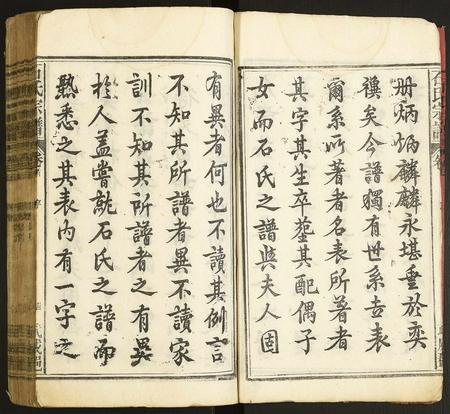 册炳炳麟麟永堪垂於奕
禩矣今譜獨有世系吉表
爾系所著者名表所著者
其字其生卒塟其配偶子
女而石氏之譜與夫人固
有異者何也不讀其例言
不知其所譜者異不讀家
訓不知其所譜者之有異
於人蓋嘗就石氏之譜而
熟悉之其表内有一字之
石氏宗譜